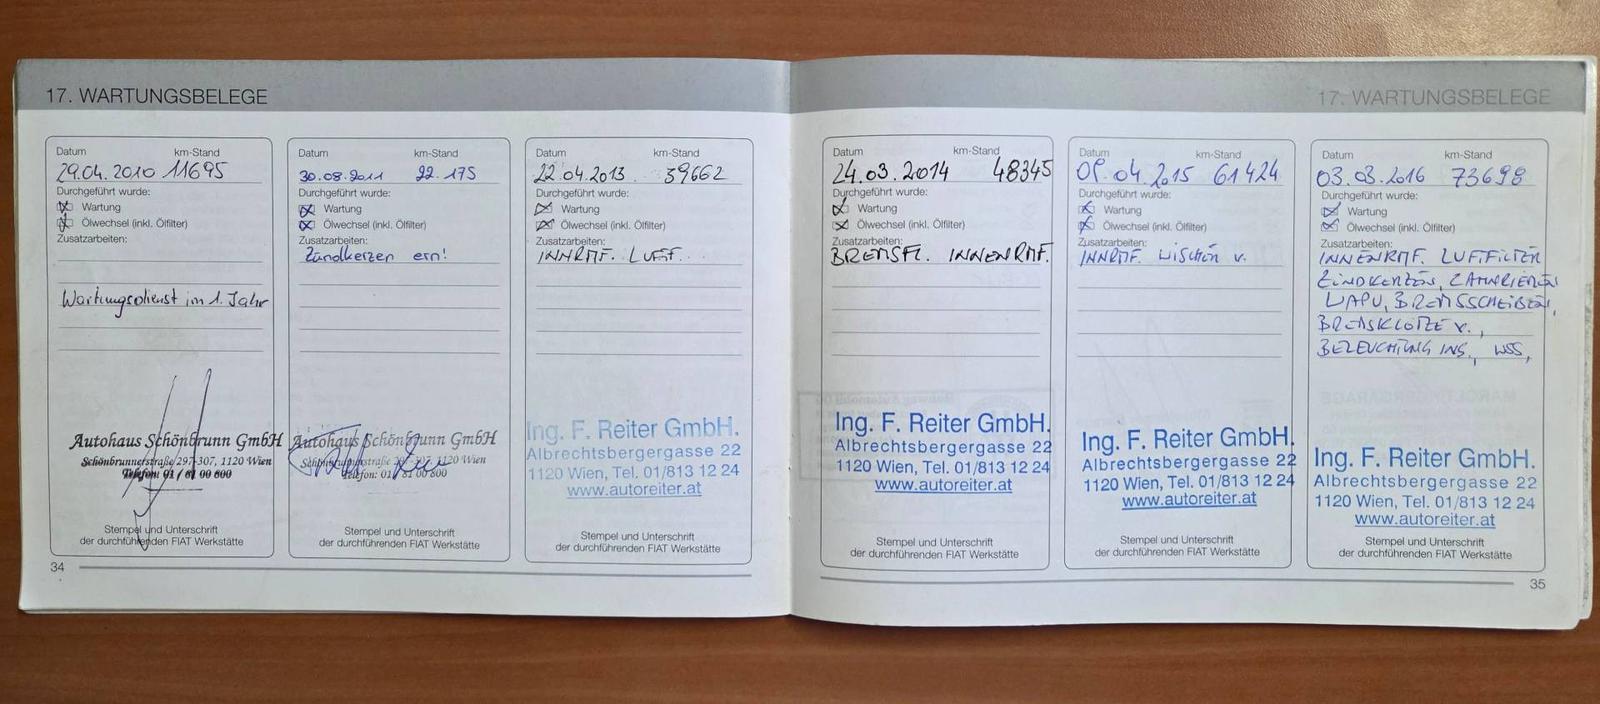 17. WARTUNGSBELEGE
Datum km-Stand
29.04.2010 11695
Durchgeführt wurde:
Wartung
Ölwechsel (inkl. Ölfilter)
Zusatzarbeiten:
Wartungsdienst im 1. Jahr
Autohaus Schönbrunn GmbH
Schönbrunnerstraße 297-307, 1120 Wien
Telefon: 01 / 81 00 800
Stempel und Unterschrift
der durchführenden FIAT Werkstätte
Datum km-Stand
30.08.2011 22.175
Durchgeführt wurde:
Wartung
Ölwechsel (inkl. Ölfilter)
Zusatzarbeiten:
Zündkerzen ern!
Autohaus Schönbrunn GmbH
Schönbrunnerstraße 297-307, 1120 Wien
Telefon: 01/ 81 00 800
Stempel und Unterschrift
der durchführenden FIAT Werkstätte
Datum km-Stand
22.04.2013 39662
Durchgeführt wurde:
Wartung
Ölwechsel (inkl. Ölfilter)
Zusatzarbeiten:
INNRMF. LUFTF.
Ing. F. Reiter GmbH.
Albrechtsbergergasse 22
1120 Wien, Tel. 01/813 12 24
www.autoreiter.at
Stempel und Unterschrift
der durchführenden FIAT Werkstätte
34
17. WARTUNGSBELEGE
Datum km-Stand
24.03.2014 48345
Durchgeführt wurde:
Wartung
Ölwechsel (inkl. Ölfilter)
Zusatzarbeiten:
BREMSFL. INNENRMF.
Ing. F. Reiter GmbH.
Albrechtsbergergasse 22
1120 Wien, Tel. 01/813 12 24
www.autoreiter.at
Stempel und Unterschrift
der durchführenden FIAT Werkstätte
Datum km-Stand
04.2015 61424
Durchgeführt wurde:
Wartung
Ölwechsel (inkl. Ölfilter)
Zusatzarbeiten:
INNRMF. WISCHER V.
Ing. F. Reiter GmbH.
Albrechtsbergergasse 22
1120 Wien, Tel. 01/813 12 24
www.autoreiter.at
Stempel und Unterschrift
der durchführenden FIAT Werkstätte
Datum km-Stand
03.03.2016 73698
Durchgeführt wurde:
Wartung
Ölwechsel (inkl. Ölfilter)
Zusatzarbeiten:
INNENRMF. LUFTFILTER
ZÜNDKERZEN, ZAHNRIEMEN
WAPU, BREMSSCHEIBEN,
BREMSKLÖTZE V.,
BELEUCHTUNG INS., WSS,
Ing. F. Reiter GmbH.
Albrechtsbergergasse 22
1120 Wien, Tel. 01/813 12 24
www.autoreiter.at
Stempel und Unterschrift
der durchführenden FIAT Werkstätte
35